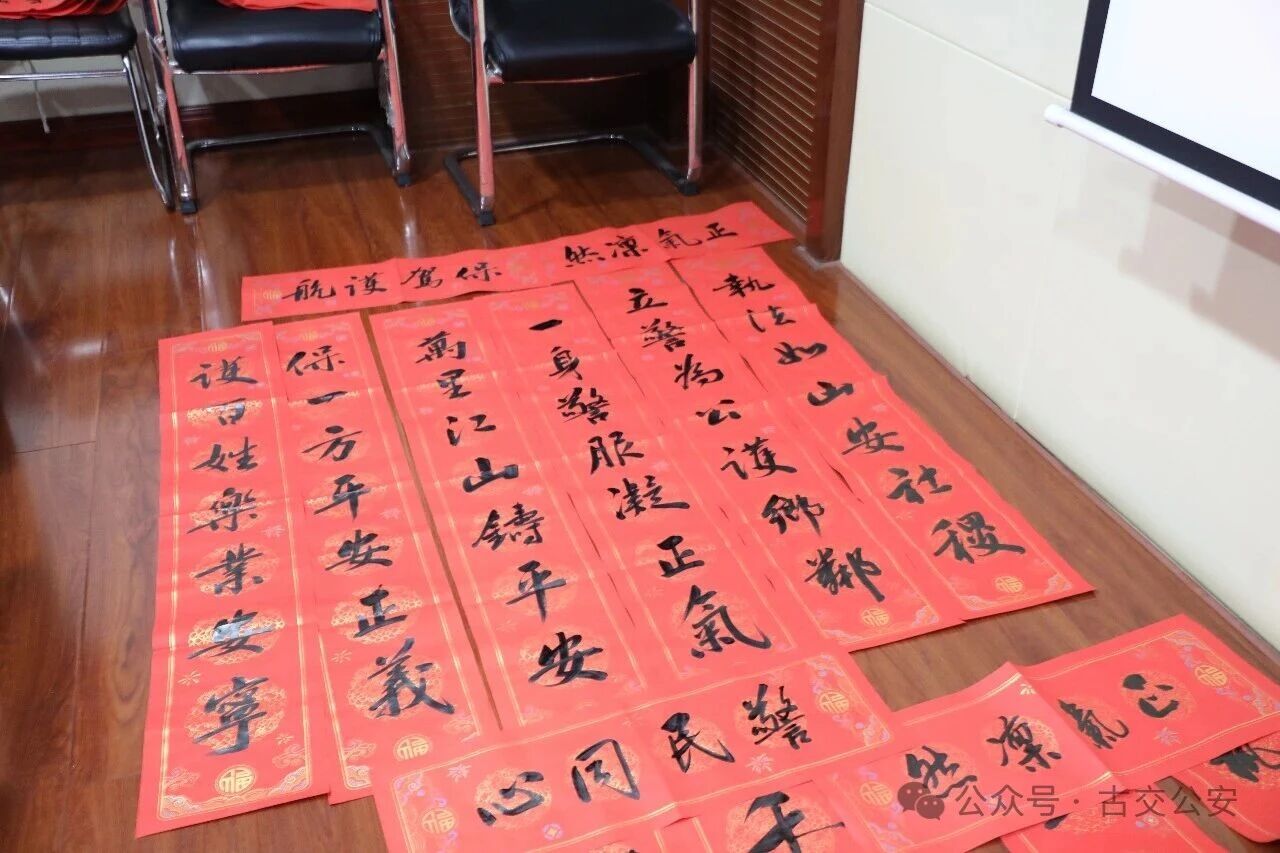 正氣凜然
保駕護航
執法如山安社稷
立警為公護鄉鄰
一身警服凝正氣
萬里江山鑄平安
保一方平安正義
護百姓樂業安寧
警民同心
正氣凜然
平
公众号 · 古交公安